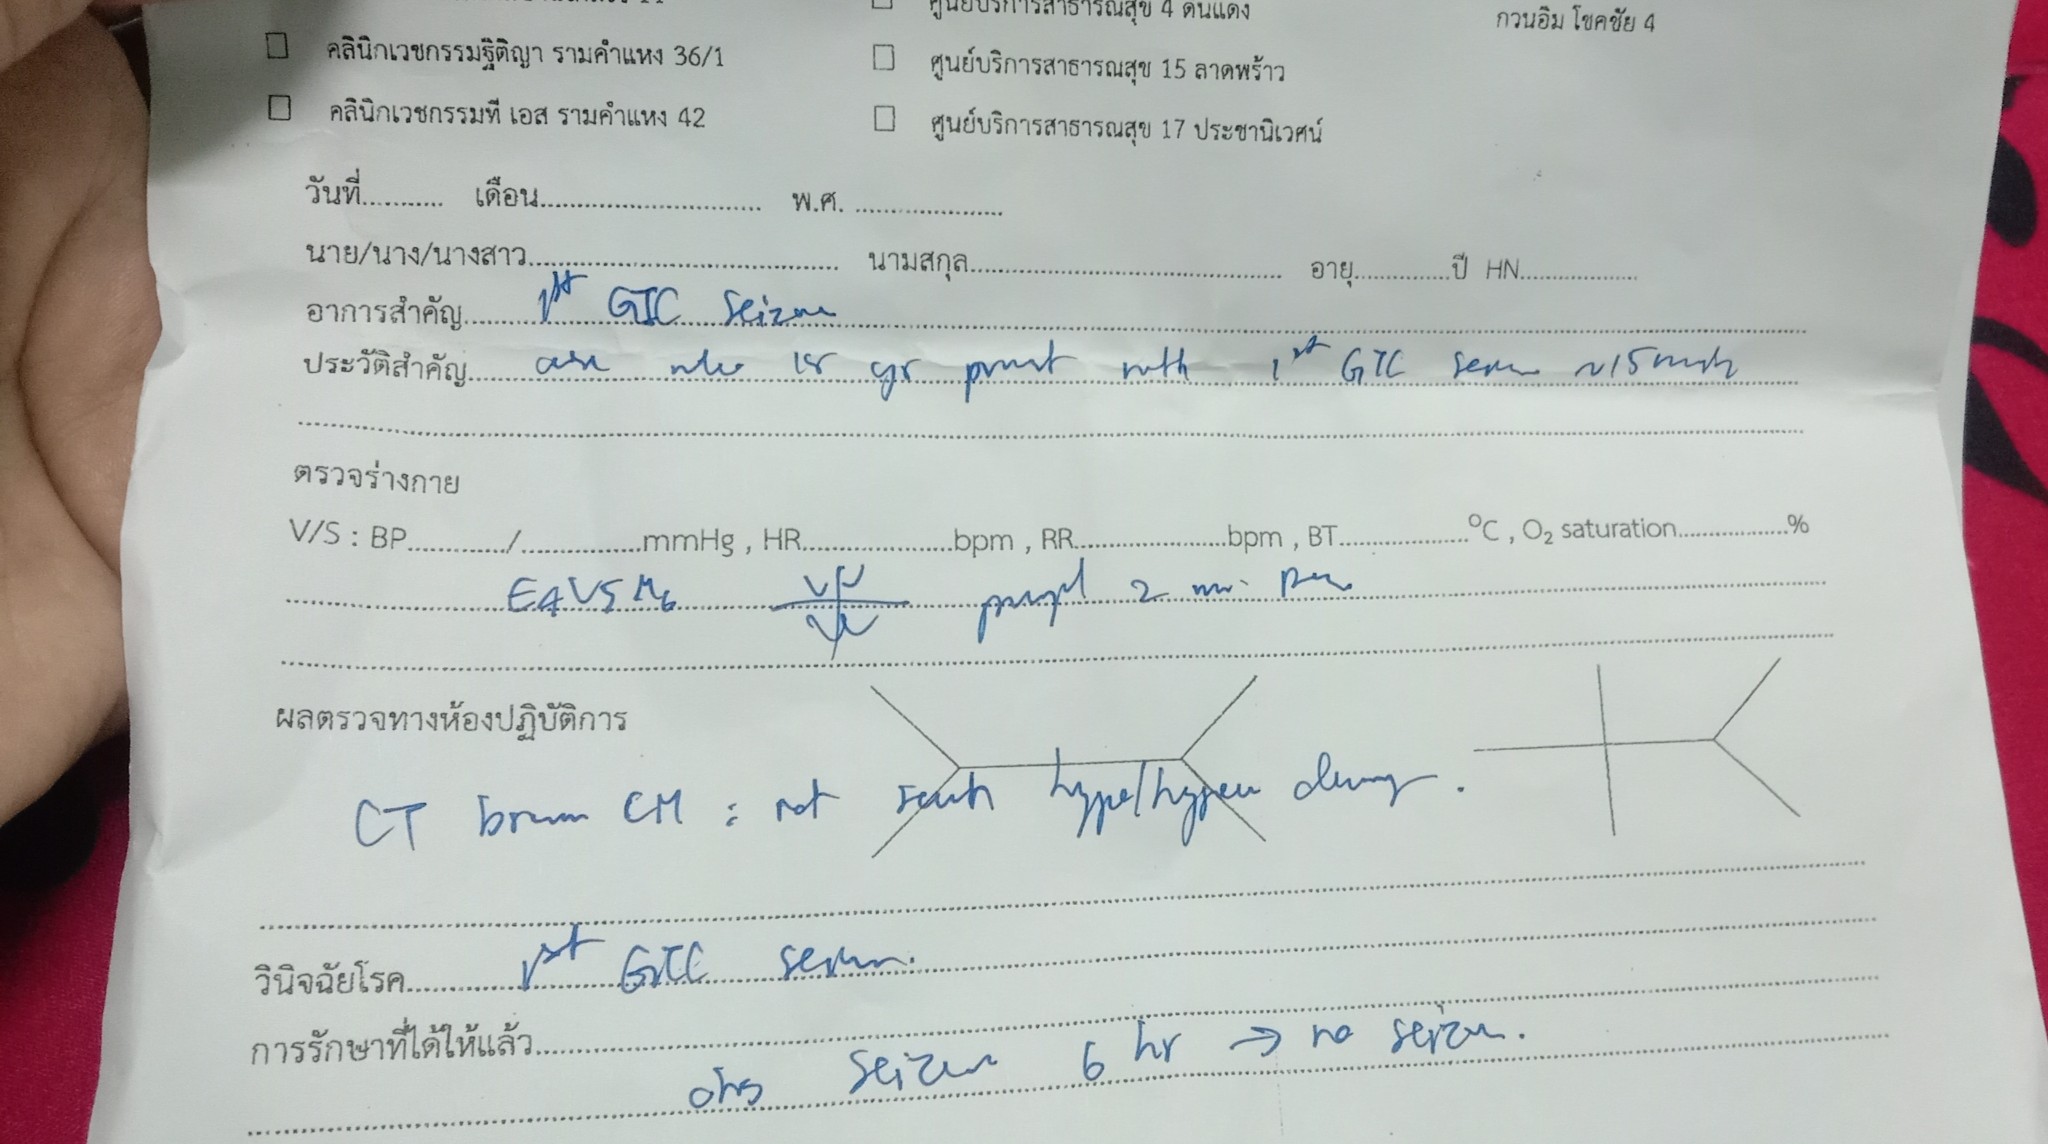 ศูนย์บริการสาธารณสุข 4 ดินแดง
กวนอิม โชคชัย 4
คลินิกเวชกรรมฐิติญา รามคำแหง 36/1
ศูนย์บริการสาธารณสุข 15 ลาดพร้าว
คลินิกเวชกรรมที เอส รามคำแหง 42
ศูนย์บริการสาธารณสุข 17 ประชานิเวศน์
วันที่........... เดือน.............................. พ.ศ. ....................
นาย/นาง/นางสาว.......................................... นามสกุล.......................................... อายุ.............ปี HN................
อาการสำคัญ 1st GTC seizure
ประวัติสำคัญ 18 yr present with 1st GTC seizure ~15
ตรวจร่างกาย
V/S : BP............/...............mmHg , HR...................bpm , RR...................bpm , BT.................°C , O2 saturation..............%
E4V5M6 2
ผลตรวจทางห้องปฏิบัติการ
CT brain : not hypo/hyper
วินิจฉัยโรค 1st GTC seizure.
การรักษาที่ได้ให้แล้ว
obs seizure 6 hr → no seizure.